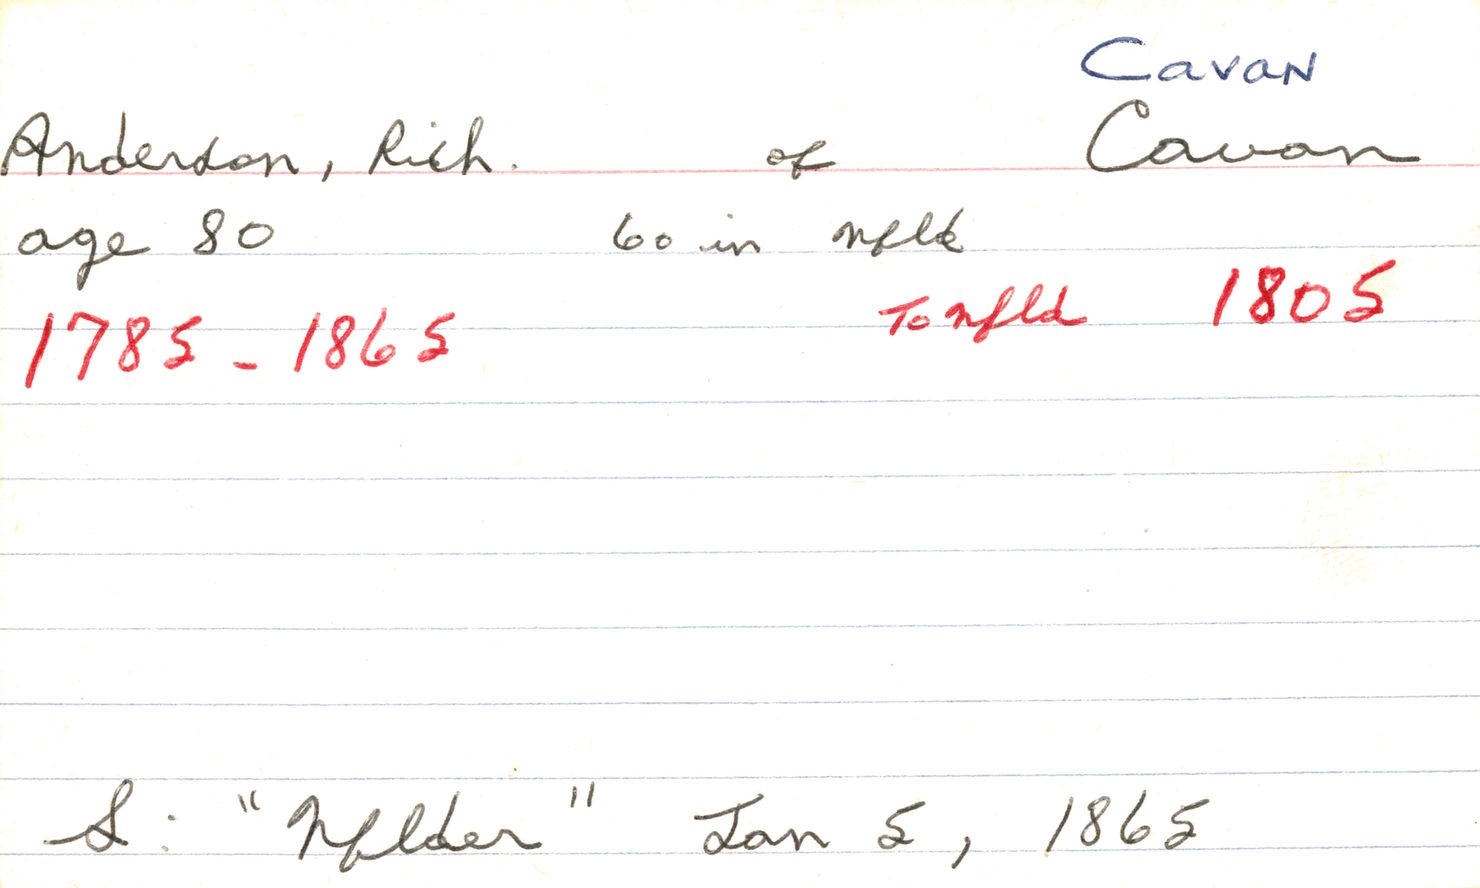 Cavan
Anderson, Rich. of Cavan
age 80 60 in Nfld
To Nfld 1805
1785 - 1865
S: "Nflder" Jan 5, 1865